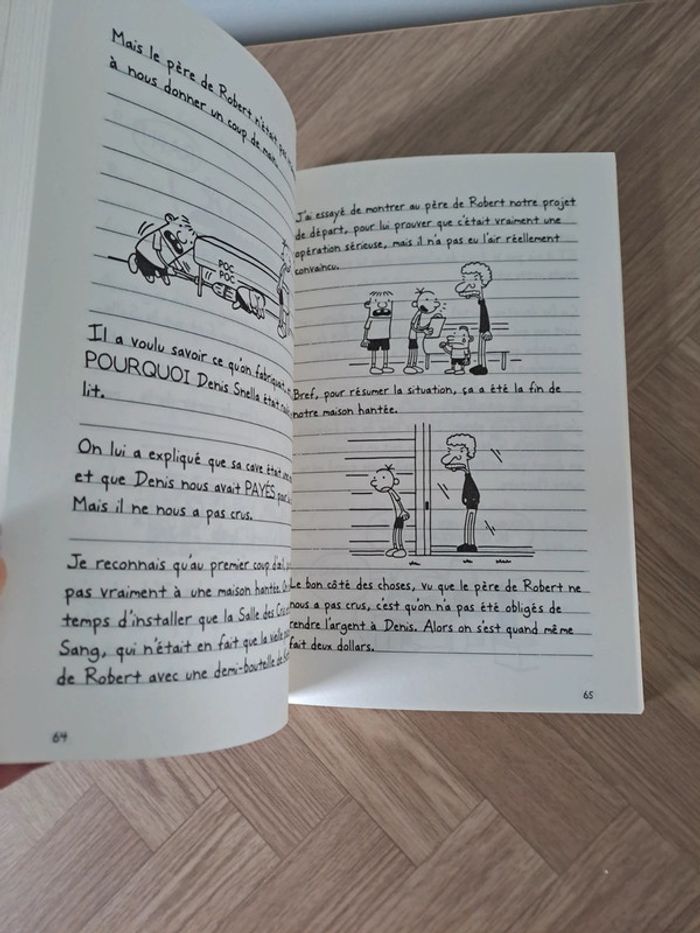 Mais le père de Robert n'était pas
à nous donner un coup de main.
POC
POC
Il a voulu savoir ce qu'on fabriquait,
POURQUOI Denis Snella était
lit.
On lui a expliqué que sa cave était
et que Denis nous avait PAYÉS
Mais il ne nous a pas crus.
Je reconnais qu'au premier coup d'œil,
pas vraiment à une maison hantée.
temps d'installer que la Salle des
Sang, qui n'était en fait que la vieille
de Robert avec une demi-bouteille de
64
J'ai essayé de montrer au père de Robert notre projet
de départ, pour lui prouver que c'était vraiment une
opération sérieuse, mais il n'a pas eu l'air réellement
convaincu.
Bref, pour résumer la situation, ça a été la fin de
notre maison hantée.
Le bon côté des choses, vu que le père de Robert ne
nous a pas crus, c'est qu'on n'a pas été obligés de
rendre l'argent à Denis. Alors on s'est quand même
fait deux dollars.
65